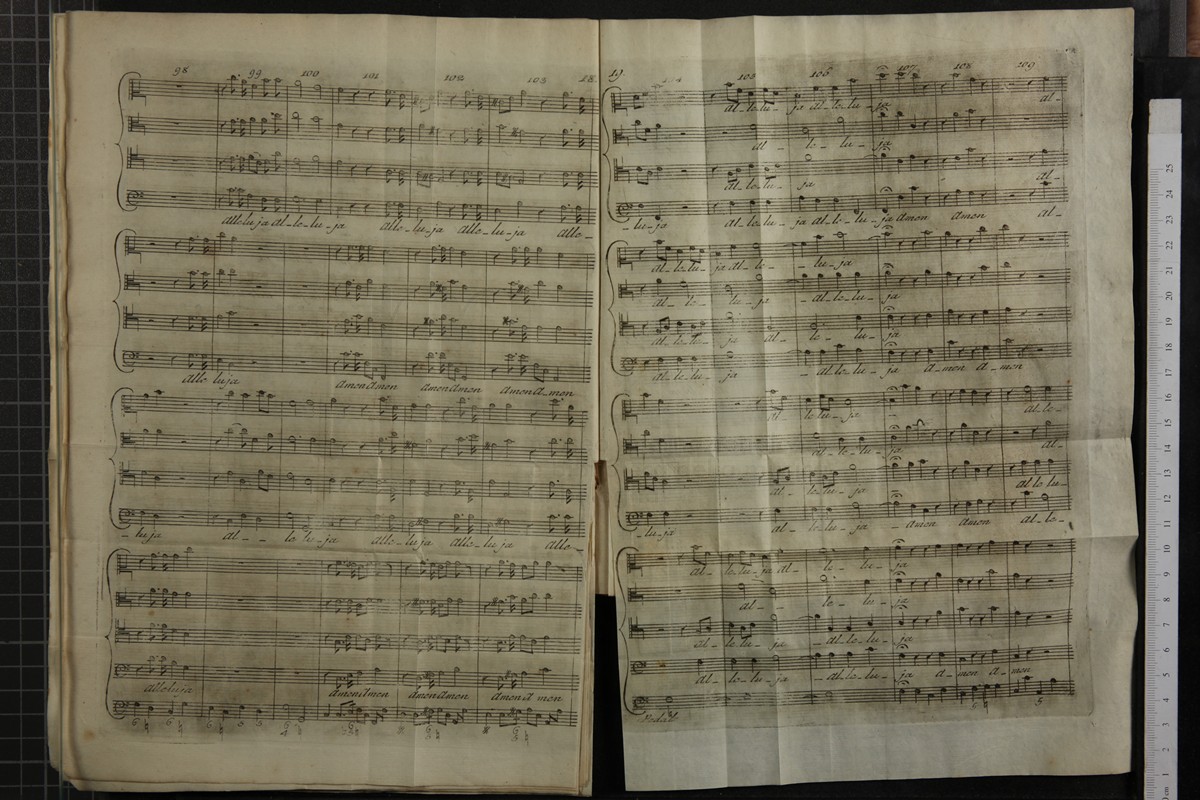 98 99 100 101 102 103 18.
alleluja al-le-lu-ja alle-lu-ja alle-lu-ja alle-
alle luja amen amen amen amen amen a-men
-luja al- - le-lu-ja alle-luja alle-lu-ja alle-
alleluja amen amen amen amen amen a men
19 104 105 106 107 108 109
al-le-lu-ja al-le-lu-ja al-
al- le-lu-ja
al-le-lu-ja al-
-lu-ja al-le-lu-ja al-le-lu-ja amen amen al-
al-le-lu-ja al-le- -lu-ja
al-le-lu-ja -al-le-lu-ja
al-le-lu-ja al-le-lu-ja
al-le-lu-ja -al-le-lu-ja a-men a-men
al-le-lu-ja al-le-
al-le-lu-ja al-
al-le-lu-ja al-le-lu-
-lu-ja al-le-lu-ja -amen amen al-le-
al-le-lu-ja al-le-lu-ja
al- le-lu-ja
al-le-lu-ja -al-le-lu-ja
al-le-lu-ja -al-le-lu-ja a-men a-men